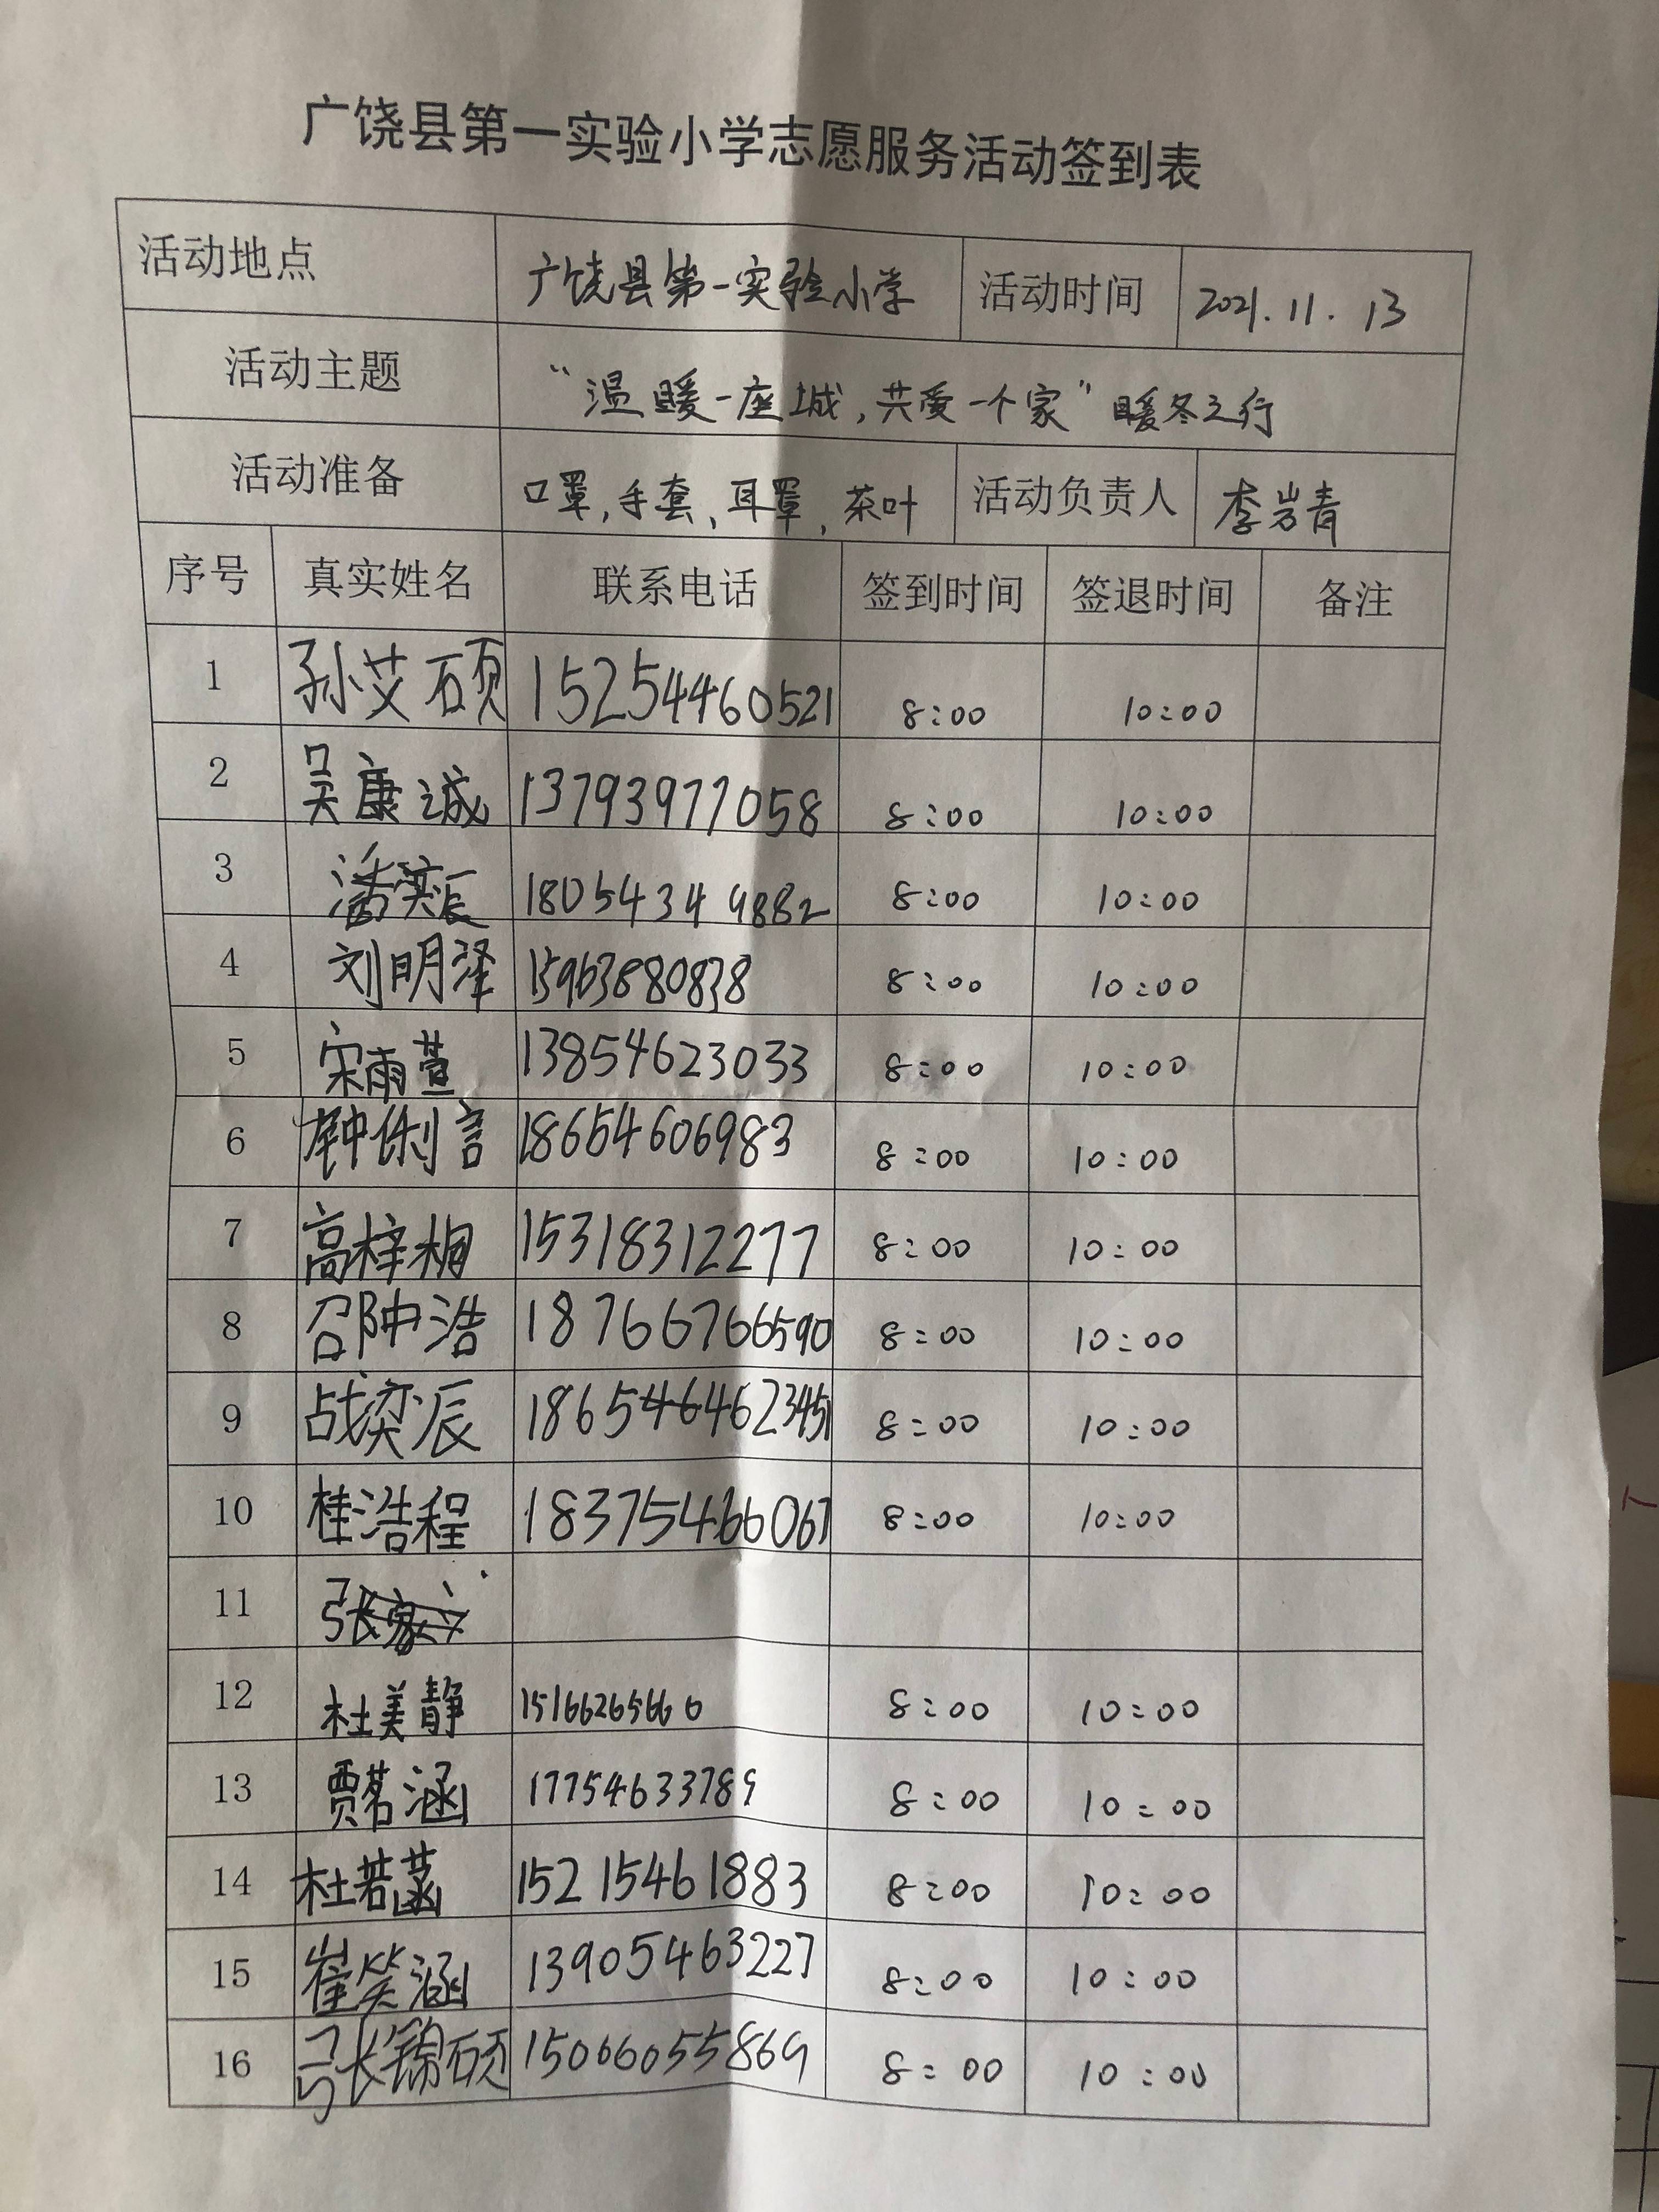 广饶县第一实验小学志愿服务活动签到表
活动地点 广饶县第一实验小学 活动时间 2021.11.13
活动主题 “温暖一座城,共爱一个家”暖冬之行
活动准备 口罩,手套、耳罩,茶叶 活动负责人 李岩青
序号 真实姓名 联系电话 签到时间 签退时间 备注
1 孙艾硕 15254460521 8:00 10:00
2 吴康诚 13793977058 8:00 10:00
3 潘奕辰 18054349882 8:00 10:00
4 刘明泽 15963880838 8:00 10:00
5 宋雨萱 13854623033 8:00 10:00
6 18654606983 8:00 10:00
7 高梓桐 15318312277 8:00 10:00
8 18766766590 8:00 10:00
9 战奕辰 8:00 10:00
10 桂浩程 18375466067 8:00 10:00
11
12 杜美静 15166265660 8:00 10:00
13 贾茗涵 17754633789 8:00 10:00
14 杜若菡 15215461883 8:00 10:00
15 崔笑涵 13905463227 8:00 10:00
16 张锦硕 15066055869 8:00 10:00